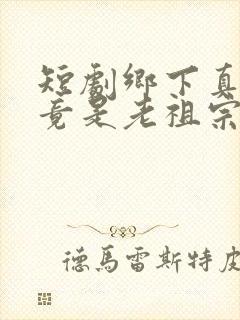 短劇鄉下真
竟是老祖宗
德馬雷斯特皮